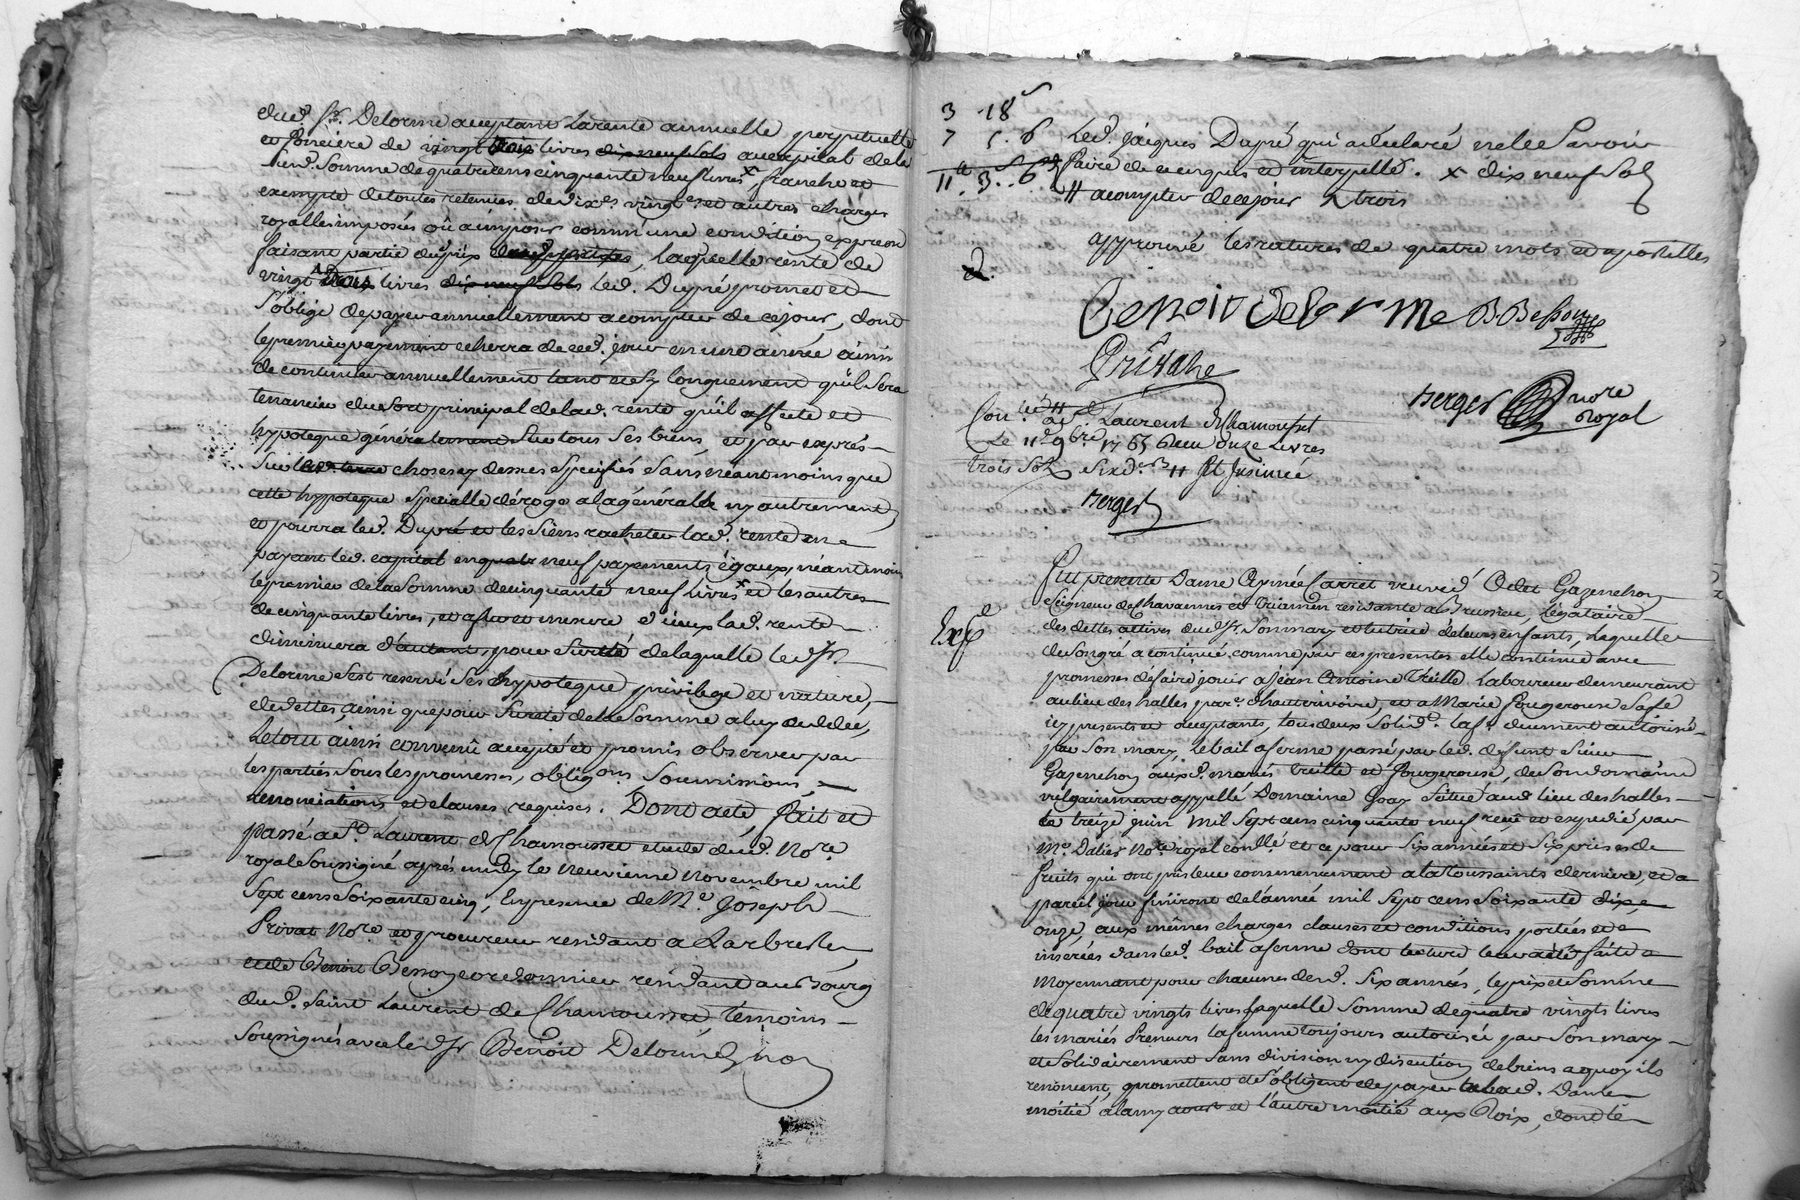 dud. Sr. Delorme acceptant la rente annuelle perpetuelle
et fonciere de vingt livres dix neuf sols au capital de la
susd. Somme de quatre cens cinquante neuf livres x, franche et
exempte de toutes retenues de dixes vingtes et autres charges
royalles imposés où a imposer comme une condition expresse
faisant partie du prix, laquelle rente de
vingt trois livres dix neuf sols led. Dupré promet et
s'oblige de payer annuellement a compter de ce jour, dont
le premier payement echerra de ced. jour en une année ainsi
de continuer annuellement tant et sy longuement qu'il sera
tenancier du sort principal de lad. rente qu'il affecte et
hypoteque généralement sur tous ses biens, et par exprés
sur les choses cy dessus specifiés sans néantmoins que
cette hypoteque specialle déroge a la générale ny autrement,
et pourra led. Dupré et les siens racheter lad. rente en
payant led. capital en neuf payements égaux, néantmoins
le premier de la somme de cinquante neuf livres x et les autres
de cinquante livres, et a fur et mesure d'iceux lad. rente
diminuera d'autant, pour sureté de laquelle led. Sr.
Delorme s'est reservé ses hypoteque privilege et nature
de dettes, ainsi que pour sureté de la somme a luy deleguée,
Le tout ainsi convenû accepté et promis observer par
les parties sous les promesses, obligons soumissions,
renonciations et clauses requises. Dont acte, fait et
passé a St. Laurent de Chamousset etude dud. Nore.
royal soussigné aprés midy le neuvieme Novembre mil
sept cens soixante cinq, En presence de Me. Joseph
Privat Nore. et procureur residant a Larbresle
et de Benoit Besson cordonnier residant au Bourg
dud. Saint Laurent de Chamousset témoins
soussignés avec led. Sr Benoit Delorme, non
3 . 18 s
7 . 5 . 6
11 tt . 3 s . 6 d
Led. Jacques Dupré qui a declaré ne le savoir
faire de ce enquis et interpellé. x dix neuf sols
# a compter de ce jour trois
approuvé les ratures de quatre mots et apostilles
Benoit delorme B Besson
Privat
Berger nore
royal
Con.lé à St Laurent de Chamousset
Le 11e 9bre 1765 Reçu onze Livres
trois sols six d.
Berger
Fut presente Dame Aymée Carret veuve d'Odet Gazanchon
Seigneur de Chavannes et residante a Brussieu, Legataire
des dettes actives dud. Sr. son mary et tutrice de leurs enfants, laquelle
de son gré a continué, comme par ces presentes elle continue avec
Exp.é
promesses de faire jouir a Jean Antoine Treille Laboureur demeurant
au lieu des halles parr. d'hauterivoire, et a Marie Fougerouse sa fe
icy presents et acceptants, tous deux solid. la fe. duement autorisée
par son mary, le bail a ferme passé par led. defunt sieur
Gazanchon auxd. mariés treille et fougerouse, de son domaine
vulgairement appellé Domaine Goay situé aud. lieu des halles
le treize juin mil sept cens cinquante neuf reçu et expedié par
Me. Dalier Nore royal con.llé et ce pour six années et six prises de
fruits qui ont pris leur commencement a la toussaints derniere, et a
pareil jour finiront de l'année mil sept cens soixante
onze, aux mêmes charges clauses et conditions portées et
inserées dans led. bail a ferme dont lecture leur a été faite
Moyennant pour chacune desd. six années, le prix et somme
de quatre vingts livres laquelle somme de quatre vingts livres
les mariés Preneurs la femme toujours autorisée par son mary
et solidairement sans division ny discution de biens a quoy ils
renoncent, promettent et s'obligent de payer a lad. Dame
moitié a la my aoust et l'autre moitié aux Roix, dont le